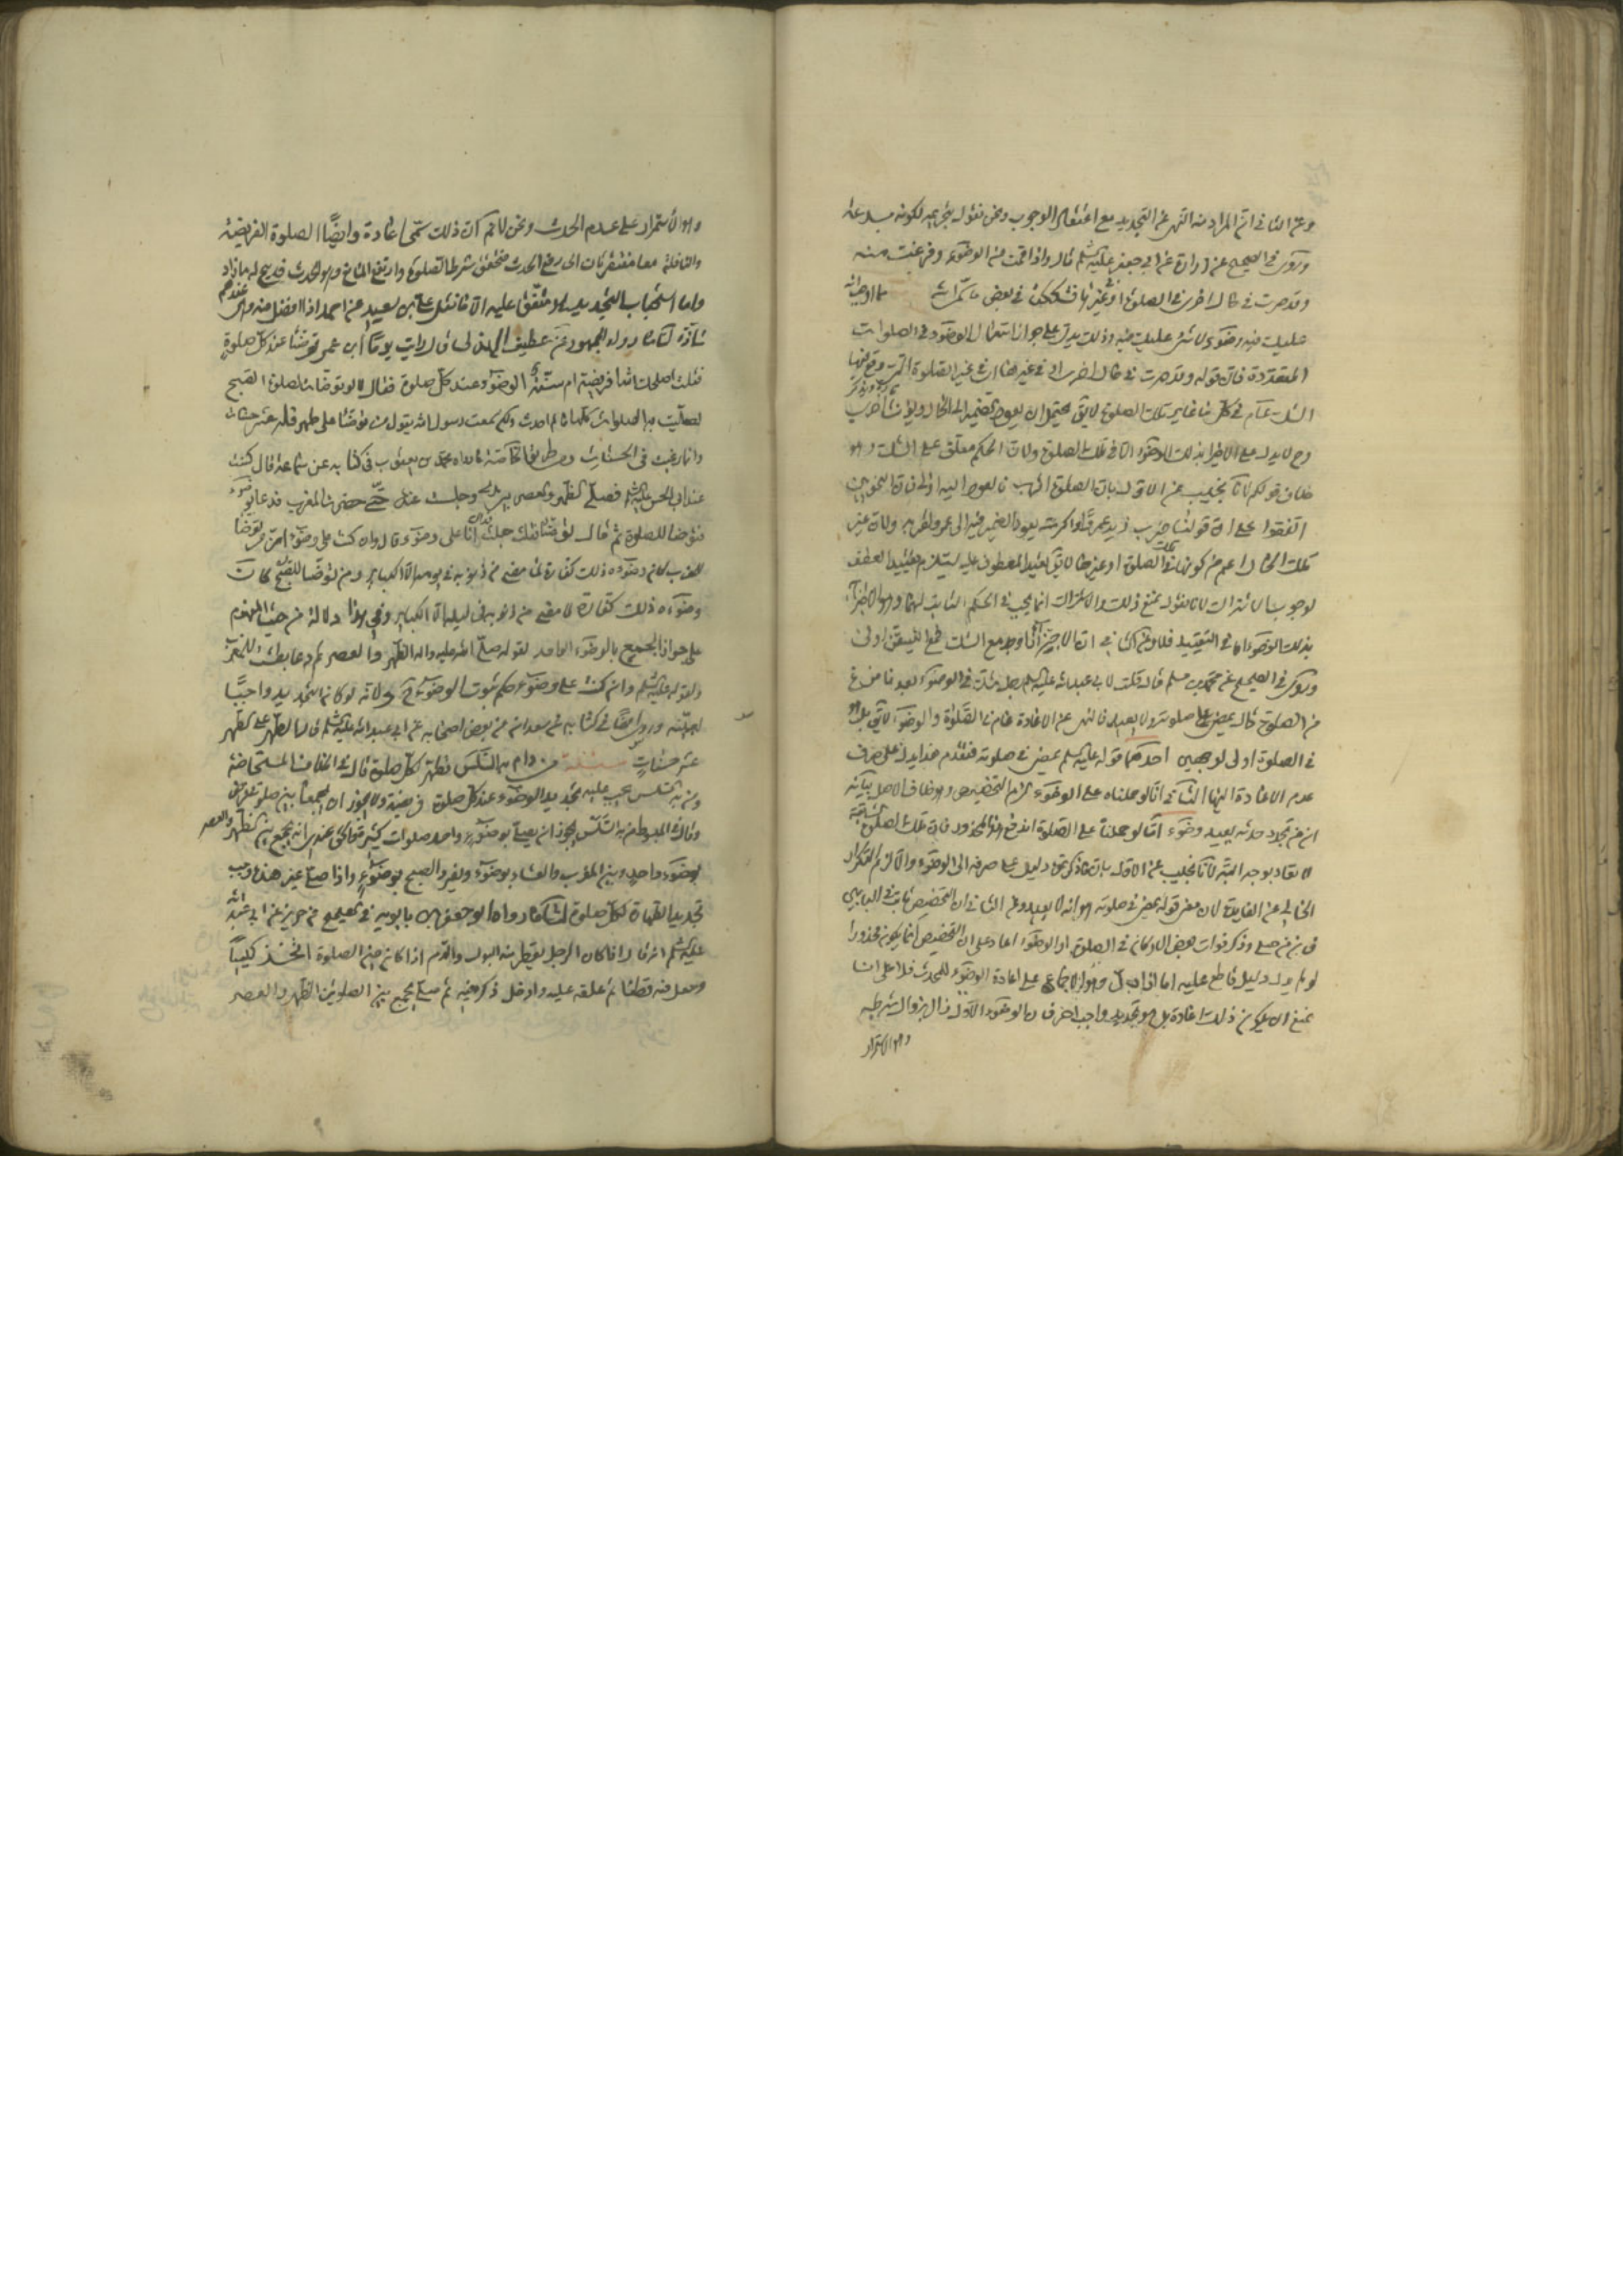 وعن الثاني انّ المراد منه النهى عن التجديد مع اعتقاد الوجوب ونحن نقول بتحريمه لكونه بدعة
وروى في الصحيح عن زرارة عن ابي جعفر عليه السلم قال واذا قمت من الوضوء وفرغت منه
وقد صرت في حال اخرى في الصلوة او غيرها فشككت في بعض ما سمى الله مما اوجب الله
عليك فيه وضوء لا شئ عليك فيه وذلك يدل على جواز استعمال الوضوء في الصلوات
المتعددة فان قوله وقد صرت في حال اخرى اى في غير
الشك عام في كل ما غاير تلك الصلوة لا يق يحتمل ان يعود الضمير الى الحال
وح لا يدل على الاجزاء بذلك الوضوء الا في تلك الصلوة ولان الحكم معلق على الشك وهو
خلاف قولكم لانا نجيب عن الاول بان الصلوة اقرب فالعود اليه اولى فان النحويين
اتفقوا على ان قولنا ضرب زيد عمروا واكرمته يعود الضمير فيه الى عمرو لقربه ولان غير
تلك الحال اعم من كونها في تلك الصلوة او غيرها لا يق تقييد المعطوف عليه يستلزم تقييد المعطف
لوجوب الاشتراك لانا نقول نمنع ذلك والاشتراك انما يجب في الحكم الثابت لهما وهو الاجزاء
بذلك الوضوء اما في التقييد فلا وعن الثاني انه اذا اجزأ مع الشك فمع التيقن اولى
وروى في الصحيح عن محمد بن مسلم قال قلت لابي عبد الله عليه السلم رجل شك في الوضوء بعد ما فرغ
من الصلوة قال يمضى على صلوته ولا يعيد فالنهى عن الاعادة عام في الصلوة والوضوء لا يق بل هو
في الصلوة اولى لوجهين احدهما قوله عليه السلم يمضى في صلوته فتقدم هذا يدل على صرف
عدم الاعادة اليها الثاني انا لو حملناه على الوضوء لزم التخصيص وهو خلاف الاصل بيانه
ان من تجدد حدثه يعيد وضوءه اما لو حملنا على الصلوة اندفع هذا المحذور فان تلك الصلوة السابقة
لا تعاد بوجه البتة لانا نجيب عن الاول بان ما ذكرتم دليل على صرفه الى الوضوء والا لزم التكرار
الخالى عن الفايدة لان معنى قوله يمضى في صلوته هو انه لا يعيد وعن الثاني ان التخصيص ثابت في البابين
فان من صلى وذكر فوات بعض الاركان في الصلوة او الوضوء اعاد على ان التخصيص انما يكون محذورا
لو لم يدل دليل قاطع عليه اما اذا دل وهو الاجماع على اعادة الوضوء للمحدث فلا على انا
نمنع ان يكون ذلك اعادة بل هو تجديد واجب اخر فان الوضوء الاول زال بزوال شرطه
وهو الاستمرار
وهو الاستمرار على عدم الحدث ونحن لا نم ان ذلك سمى اعادة وايضا الصلوة الفريضة
والنافلة معا مفتقرتان الى رفع الحدث فتحقق شرط الصلوة وارتفع المانع وهو الحدث فابيح له ما زاد
واما استحباب التجديد متفقا عليه الا ما نقل على بن سعيد عن احمد اذ لا فضل فيه وهى عندهم
شاذة لنا ما رواه الجمهور عن غطيف الهذلى قال رايت يوما ابن عمر توضأ عند كل صلوة
فقلت اصلحك الله افريضة ام سنة الوضوء عند كل صلوة فقال لا لو توضات لصلوة الصبح
لصليت به الصلوات كلها ما لم احدث ولكن سمعت رسول الله يقول من توضأ على طهر فله عشر حسنات
وانا رغبت في الحسنات ومن طريق الخاصة ما رواه محمد بن يعقوب في كتابه عن سماعة قال كنت
عند ابي الحسن عليه السلم فصلى الظهر والعصر بين يدى وجلست عنده حتى حضرت المغرب فدعا بوضوء
فتوضأ للصلوة ثم قال لى توضأ فقلت جعلت فداك انا على وضوء وقال وان كنت على وضوء ان من توضأ
للمغرب كان وضوءه ذلك كفارة لما مضى من ذنوبه في يومه الا الكباير ومن توضأ للصبح كان
وضوءه ذلك كفارة لما مضى من ذنوبه في ليله الا الكباير وفى هذا دلالة من حيث المفهوم
على جواز الجمع بالوضوء الواحد لقوله صلى الله عليه واله الظهر والعصر ثم دعا بطشت للمغرب
ولقوله عليه السلم وان كنت على وضوء حكم بثوت الوضوء ولانه لو كان التجديد واجبا
لبينه وروى ايضا في كتابه عن سعدان عن بعض اصحابه عن ابي عبد الله عليه السلم قال الطهر على الطهر
عشر حسنات مسئلة من دام به السلس يتطهر لكل صلوة قال في الخلاف المستحاضة
ومن به السلس يجب عليه تجديد الوضوء عند كل صلوة فريضة ولا يجوز ان يجمعا بين صلوتى فرض
وقال في المبسوط من به السلس يجوز ان يصلى بوضوء واحد صلوات كثيرة والحق عندى انه يجمع بين الظهر والعصر
بوضوء واحد وبين المغرب والعشاء بوضوء ويفرد الصبح بوضوء واذا صلى غير هذه وجب
تجديد الطهارة لكل صلوة لنا ما رواه ابو جعفر بن بابويه في الصحيح عن حريز عن ابي عبد الله
عليه السلم انه قال اذا كان الرجل يقطر منه البول والدم اذا كان حين الصلوة اتخذ كيسا
وجعل فيه قطنا ثم علقه عليه وادخل ذكره فيه ثم صلى يجمع بين الصلوتين الظهر والعصر